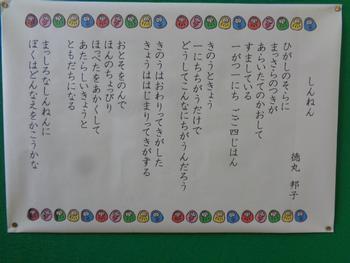 しんねん
徳丸 邦子
ひがしのそらに
まっさらのつきが
あらいたてのかおして
すましている
一がつ一にち ごご四じはん
きのうときょう
一にちちがうだけで
どうしてこんなにちがうんだろう
きのうはおわりってきがした
きょうははじまりってきがする
おとそをのんで
ほんのちょっぴり
ほっぺたをあかくして
あたらしいきょうと
ともだちになる
まっしろなしんねんに
ぼくはどんなえをかこうかな